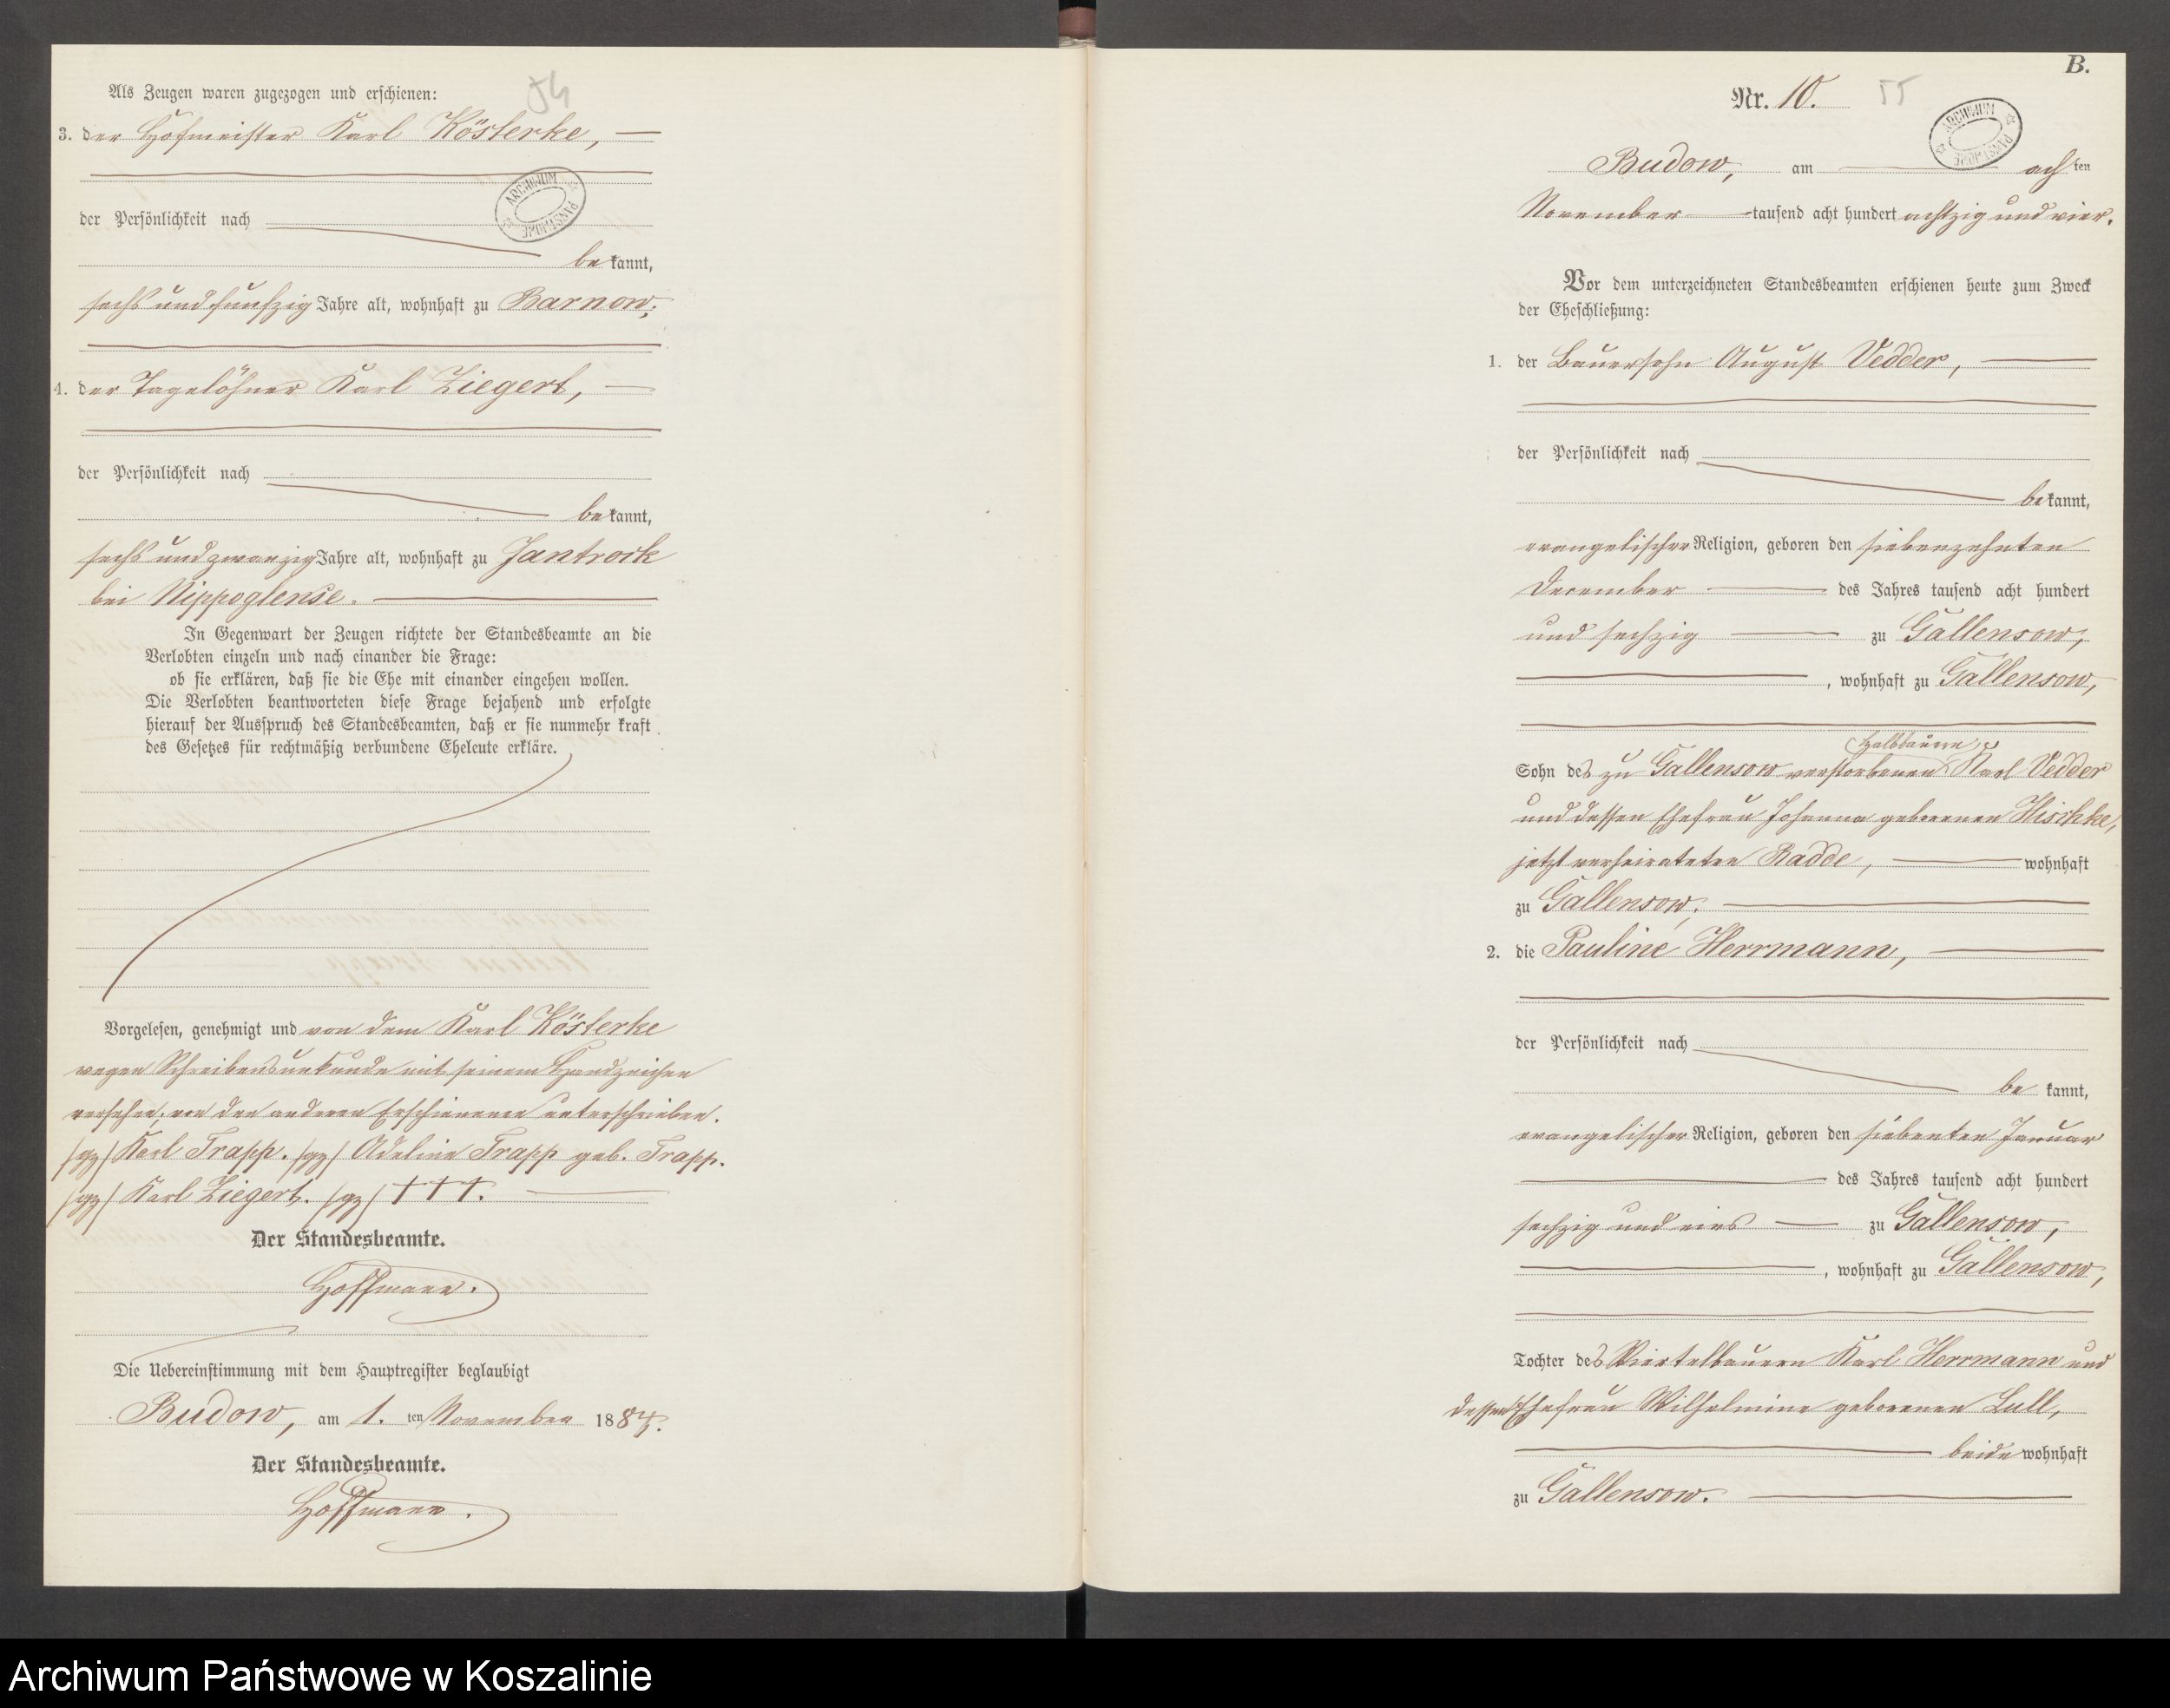 54
Als Zeugen waren zugezogen und erschienen:
3. der Hofmeister Karl Kösterke,
der Persönlichkeit nach
bekannt,
sechs und fünfzig Jahre alt, wohnhaft zu Barnow;
4. der Tagelöhner Karl Ziegert,
der Persönlichkeit nach
bekannt,
sechs und zwanzig Jahre alt, wohnhaft zu Jantrock
bei Nippoglense.
In Gegenwart der Zeugen richtete der Standesbeamte an die
Verlobten einzeln und nach einander die Frage:
ob sie erklären, daß sie die Ehe mit einander eingehen wollen.
Die Verlobten beantworteten diese Frage bejahend und erfolgte
hierauf der Ausspruch des Standesbeamten, daß er sie nunmehr kraft
des Gesetzes für rechtmäßig verbundene Eheleute erkläre.
Vorgelesen, genehmigt und von dem Karl Kösterke
wegen Schreibensunkunde mit seinem Handzeichen
versehen; von den anderen Erschienenen unterschrieben.
/gz/ Karl Trapp. /gz/ Adeline Trapp geb. Trapp.
/gz/ Karl Ziegert. /gz/ †††.
Der Standesbeamte.
Hoffmann.
Die Uebereinstimmung mit dem Hauptregister beglaubigt
Budow, am 1. ten November 1884.
Der Standesbeamte.
Hoffmann.
ARCHIWUM PAŃSTWOWE
B.
Nr. 10. 55
ARCHIWUM PAŃSTWOWE
Budow, am achten
November tausend acht hundert achtzig und vier.
Vor dem unterzeichneten Standesbeamten erschienen heute zum Zweck
der Eheschließung:
1. der Bauersohn August Vedder,
der Persönlichkeit nach
bekannt,
evangelischer Religion, geboren den siebenzehnten
December des Jahres tausend acht hundert
und sechzig zu Gallensow,
, wohnhaft zu Gallensow,
Halbbauern
Sohn des zu Gallensow verstorbenen Karl Vedder
und dessen Ehefrau Johanna geborenen Hischke,
jetzt verheirateten Radde, wohnhaft
zu Gallensow;
2. die Pauline Herrmann,
der Persönlichkeit nach
bekannt,
evangelischer Religion, geboren den siebenten Januar
des Jahres tausend acht hundert
sechzig und eins zu Gallensow,
, wohnhaft zu Gallensow,
Tochter des Viertelbauern Karl Herrmann und
dessen Ehefrau Wilhelmine geborenen Lull,
beide wohnhaft
zu Gallensow.
Archiwum Państwowe w Koszalinie